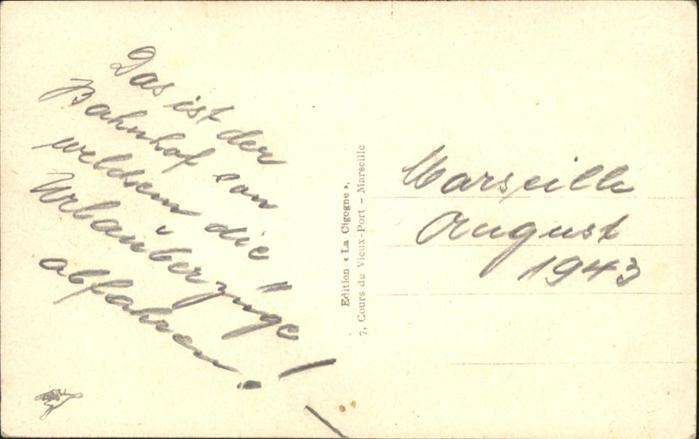 Das ist der
Bahnhof von
welchem die
Urlauberzüge
abfahren. !
Edition « La Cigogne ».
7, Cours du Vieux-Port - Marseille
Marseille
August
1943